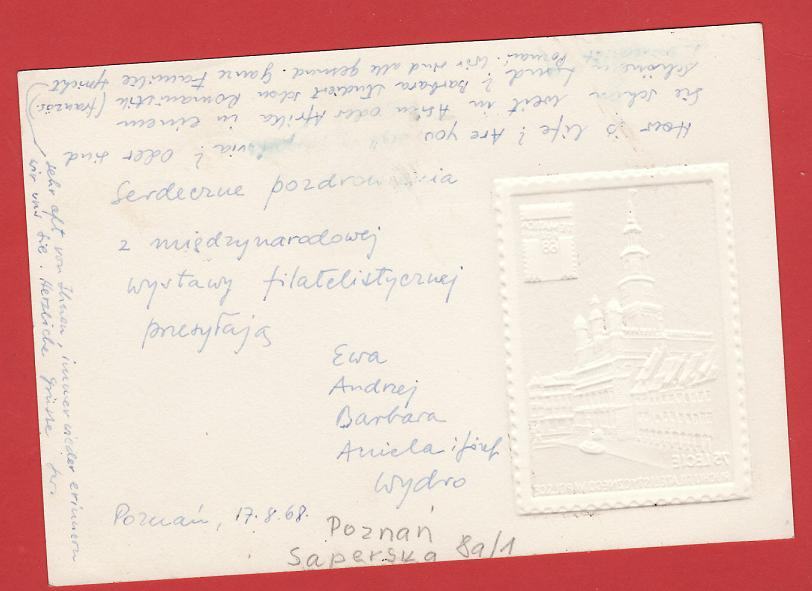 Serdeczne pozdrowienia
z międzynarodowej
wystawy filatelistycznej
przesyłają
Ewa
Andrzej
Barbara
Aniela i Józef
Wydro
Poznań, 17.8.68.
Poznań
Saperska 8a/1
How is life? Are you
? Oder sind
Sie schon weit in Asien oder Afrika in einem
schönen Land? Barbara studiert schon Romanistik (französ.
Poznań. Wir sind alle gesund. Ganze Familie spricht
sehr oft von Ihnen, immer wieder erinnern
wir uns Sie. Herzliche Grüsse
TEMATICA
68
75 LECIE